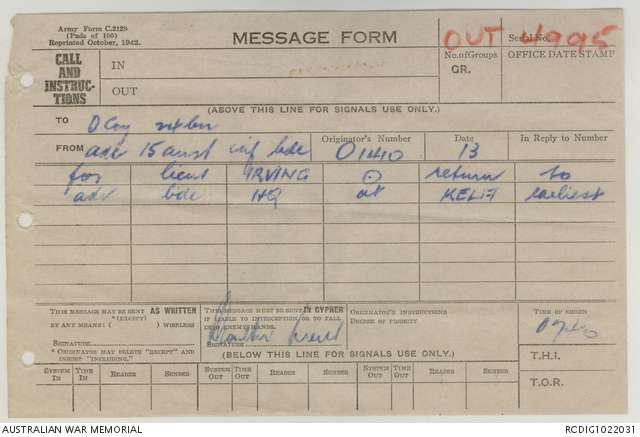 Army Form C.2128
(Pads of 100)
Reprinted October, 1942.
MESSAGE FORM
OUT 1995
Serial No.
No. of Groups
OFFICE DATE STAMP
GR.
CALL AND INSTRUC-TIONS
IN
OUT
(ABOVE THIS LINE FOR SIGNALS USE ONLY.)
TO D Coy bn
FROM adv 15 aust inf bde
Originator's Number O1410
Date 13
In Reply to Number
for lieut IRVING ⊙ return to
adv bde HQ at earliest
THIS MESSAGE MAY BE SENT AS WRITTEN
*(EXCEPT)
BY ANY MEANS: ( ) WIRELESS
SIGNATURE
* ORIGINATOR MAY DELETE "EXCEPT" AND INSERT "INCLUDING."
THIS MESSAGE MUST BE SENT IN CYPHER
IF LIABLE TO INTERCEPTION OR TO FALL INTO ENEMY HANDS.
SIGNATURE
ORIGINATOR'S INSTRUCTIONS
DEGREE OF PRIORITY
TIME OF ORIGIN
T.H.I.
T.O.R.
(BELOW THIS LINE FOR SIGNALS USE ONLY.)
SYSTEM IN TIME IN READER SENDER SYSTEM OUT TIME OUT READER SENDER SYSTEM OUT TIME OUT READER SENDER
AUSTRALIAN WAR MEMORIAL
RCDIG1022031